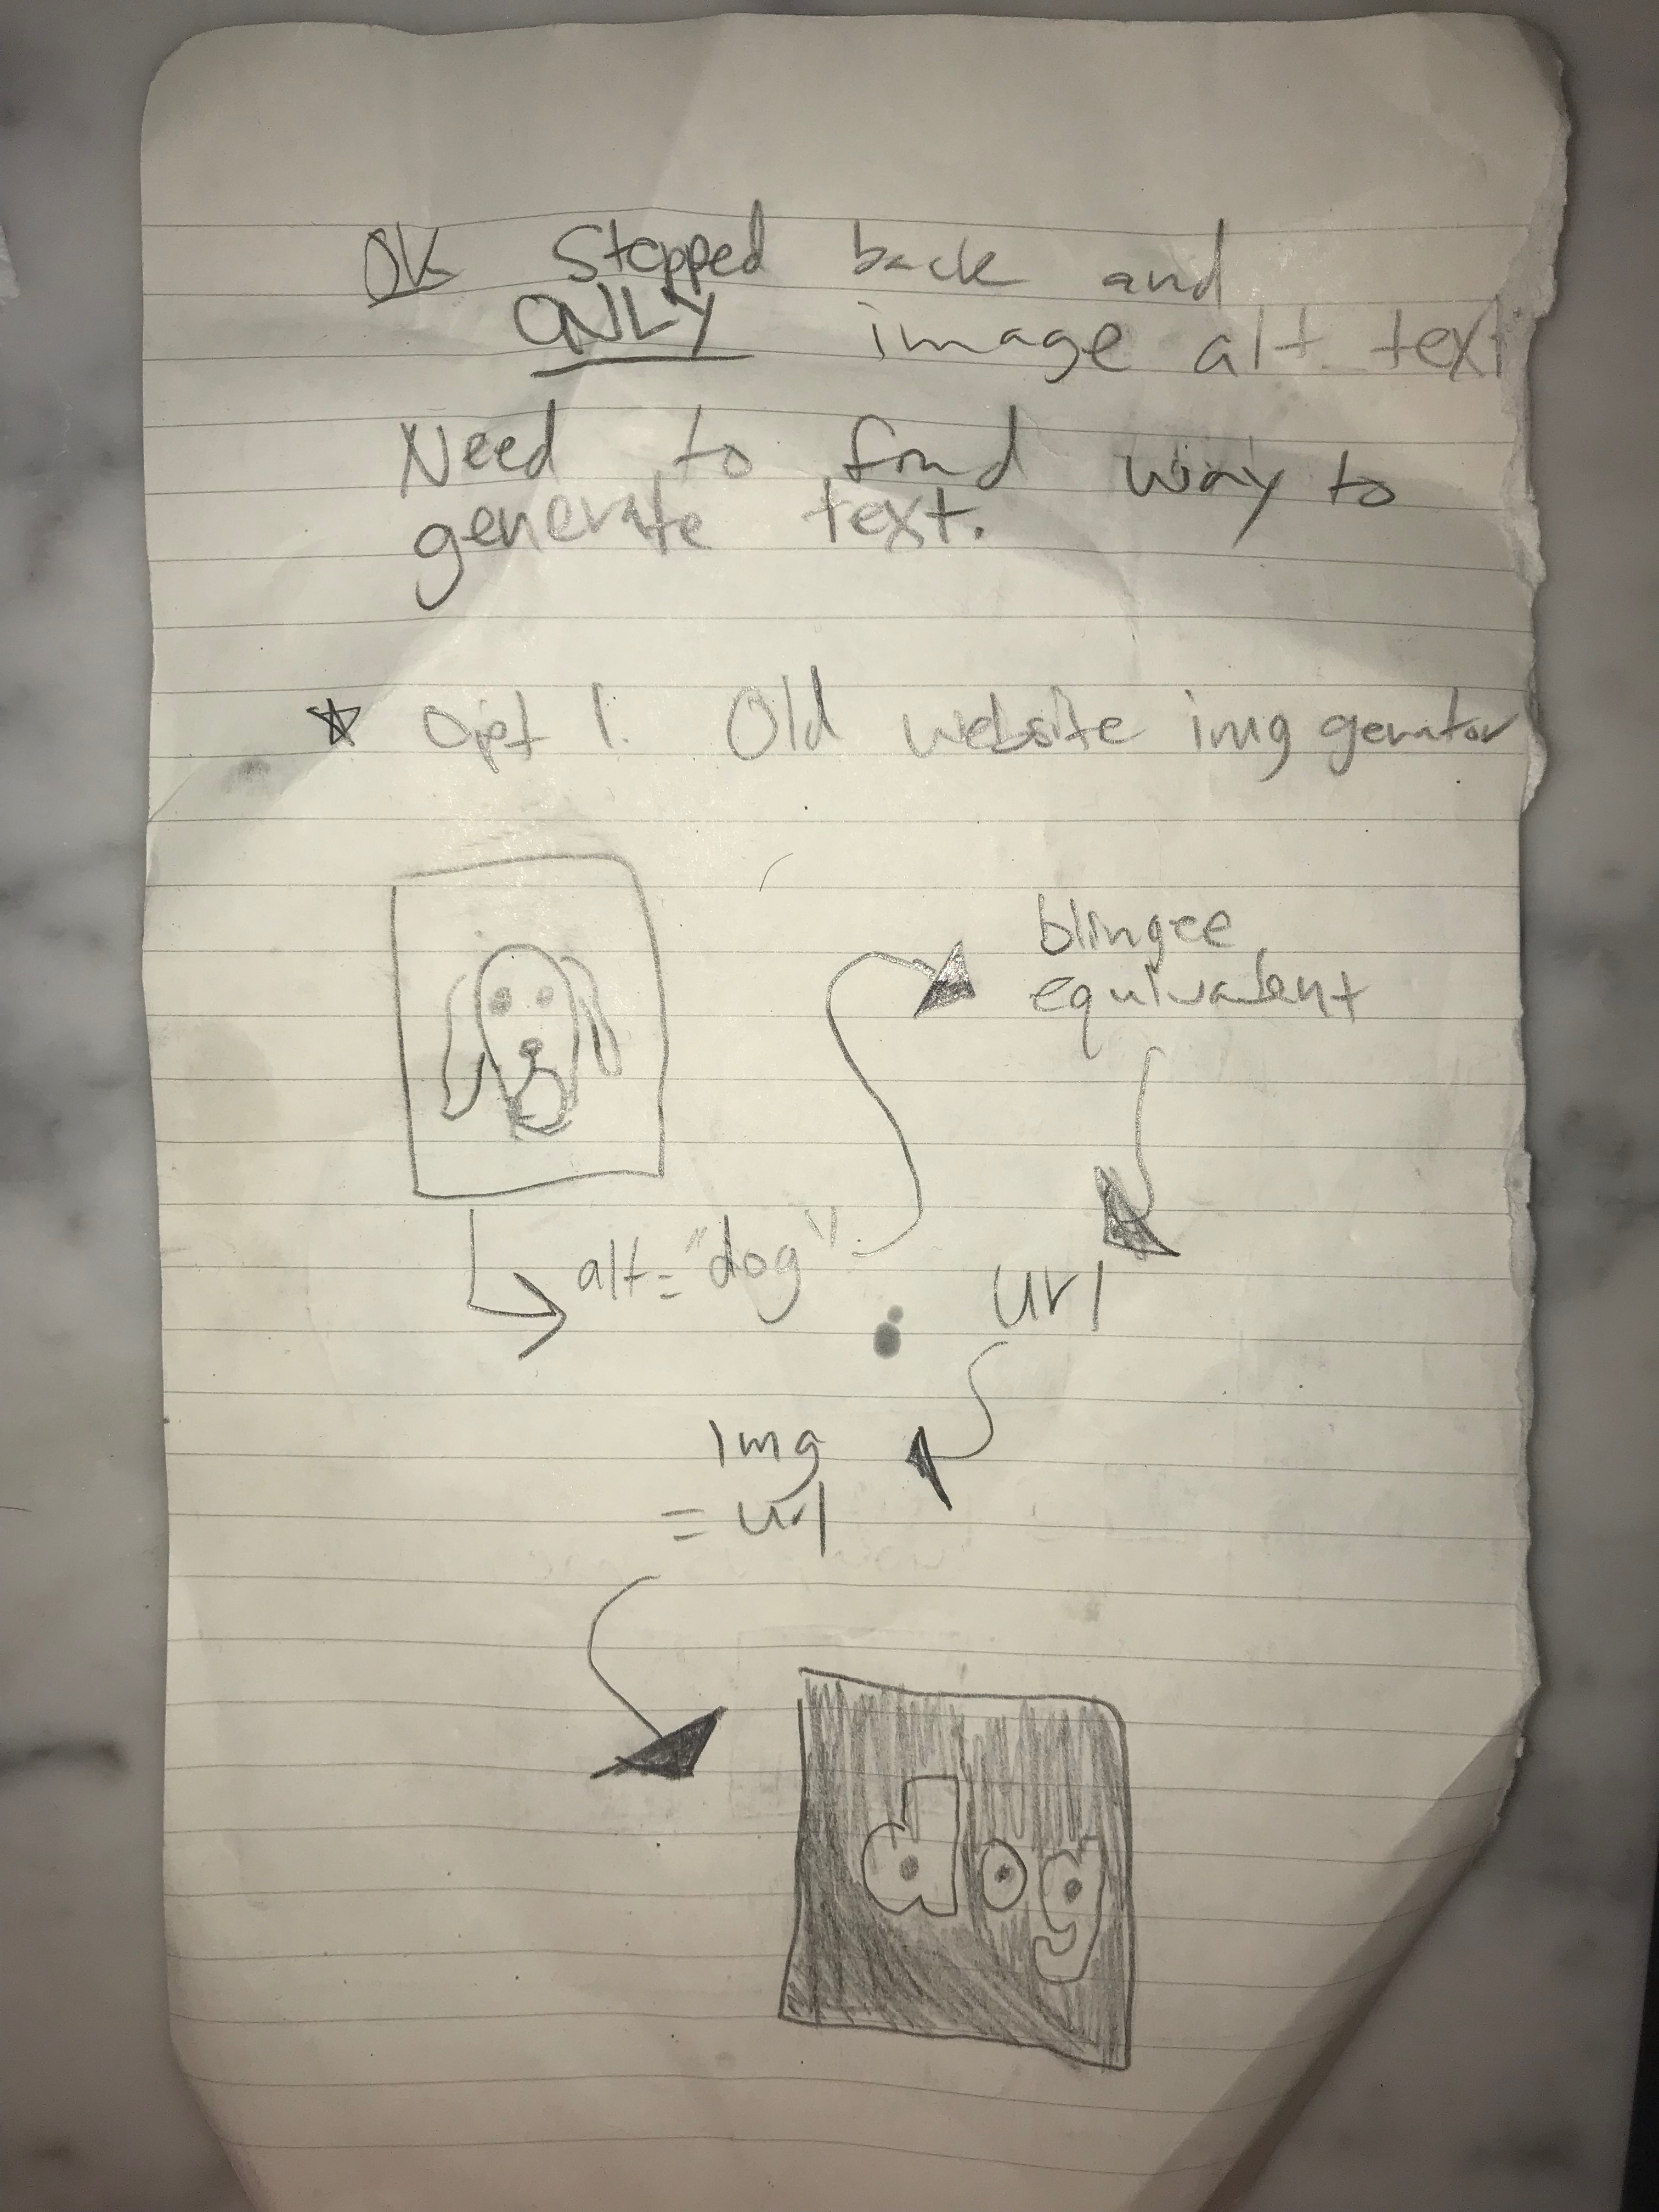 OK Stepped back and
ONLY image alt text
Need to find way to
generate text.
Opt 1. Old website img genrator
blingee
equivalent
alt= "dog"
url
img
= url
dog